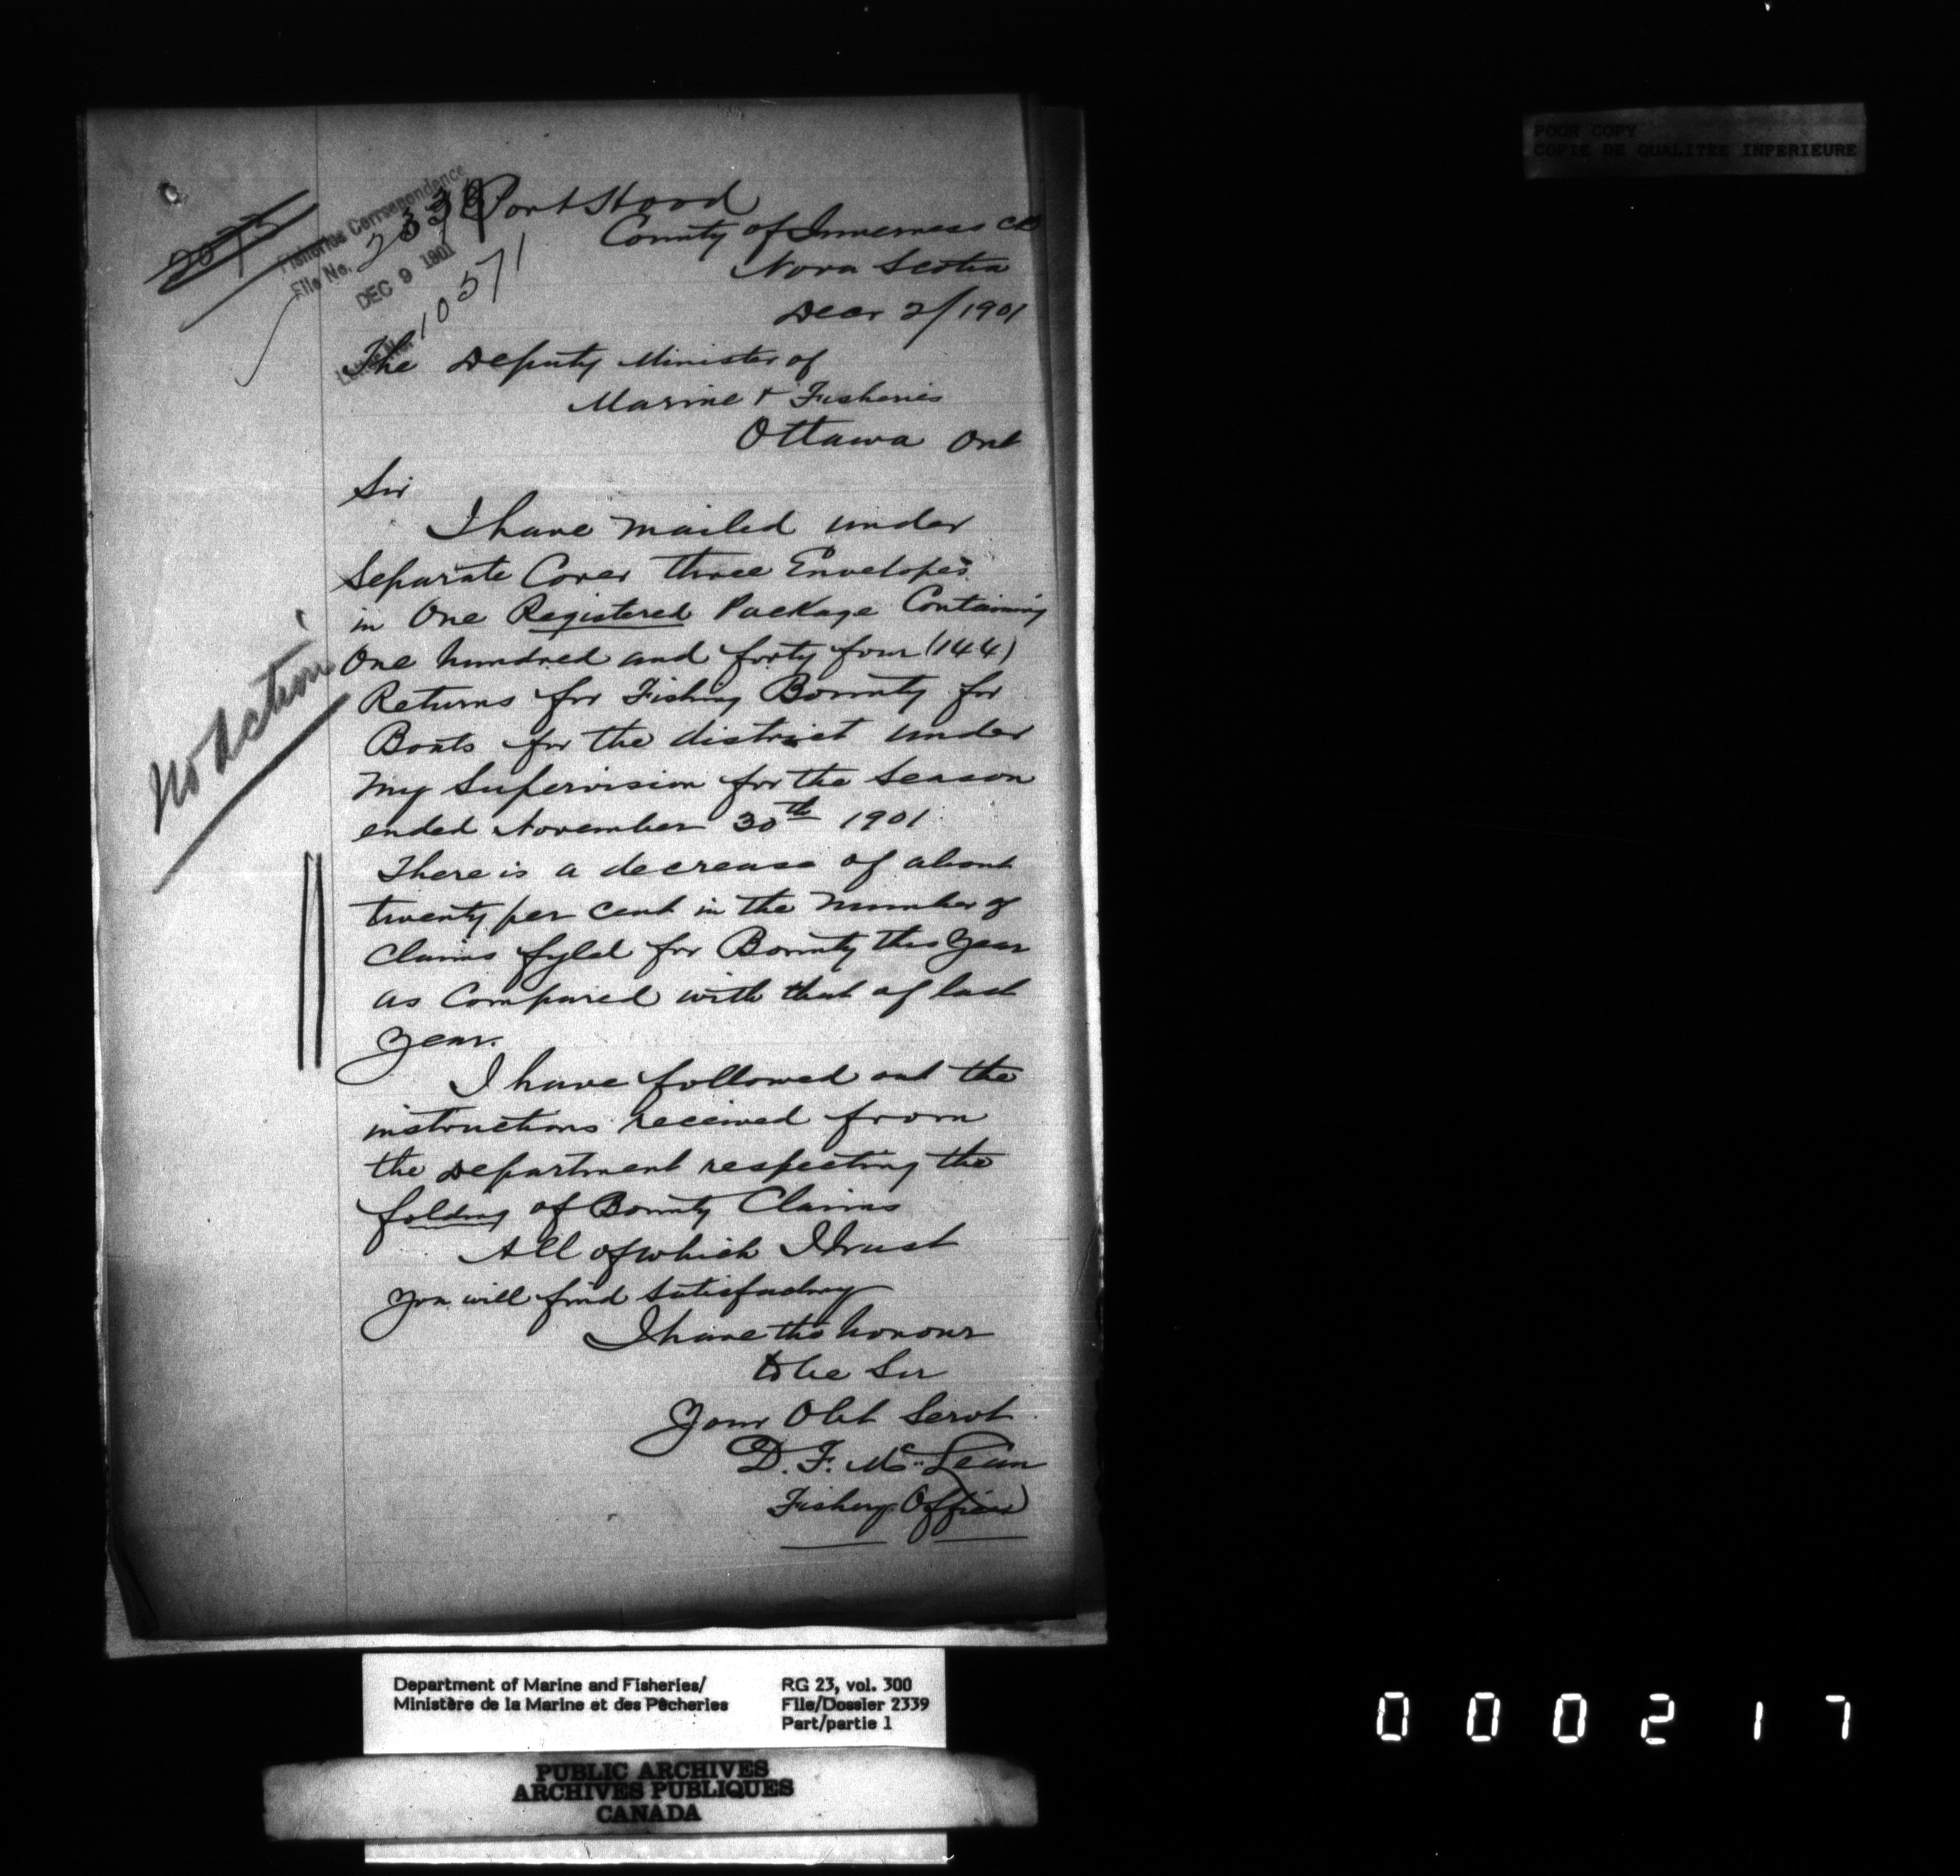 POOR COPY
COPIE DE QUALITEE INFERIEURE
2075
Fisheries Correspondence
File No. 2339
DEC 9 1901
10571
Port Hood
County of Inverness CB
Nova Scotia
Decr 2/1901
The Deputy Minister of
Marine & Fisheries
Ottawa Ont
Sir
I have mailed under
Separate Cover three Envelopes
in One Registered Package Containing
One hundred and forty four (144)
Returns for Fishing Bounty for
Boats for the district under
my Supervision for the Season
ended November 30th 1901
There is a decrease of about
twenty per cent in the number of
Claims fyled for Bounty this year
as Compared with that of last
year.
No Action
I have followed out the
instructions received from
the Department respecting the
folding of Bounty Claims
All of which I trust
you will find Satisfactory
I have the honour
to be Sir
Your Obt Servt
D. F. McLean
Fishery Officer
Department of Marine and Fisheries/
Ministère de la Marine et des Pêcheries
RG 23, vol. 300
File/Dossier 2339
Part/partie 1
PUBLIC ARCHIVES
ARCHIVES PUBLIQUES
CANADA
000217